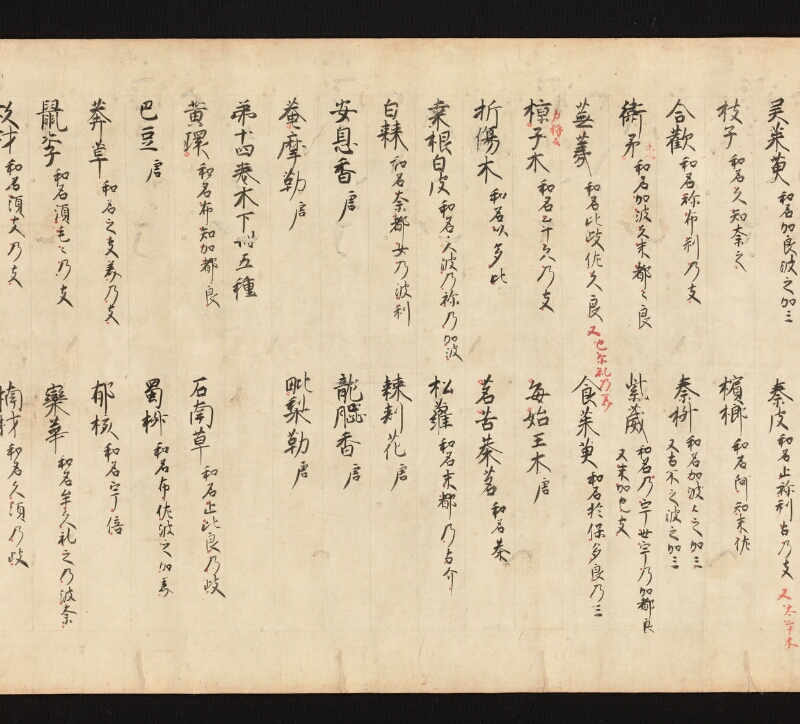 吴茱萸 和名加良波之加三 秦皮 和名止祢利古乃支
枝子 和名久知奈之 檳榔 和名阿知末佐
合歡 和名祢布利乃支 秦椒 和名加波之加三 又古不之波之加三
衛矛 和名加波久末都々良 紫葳 和名乃宇世宇乃加都良 又末加也支
蕪荑 和名比岐佐久良 又也尓礼乃 食茱萸 和名於保多良乃三
椋子木 和名 乃支 每始王木 唐
折傷木 和名以多比 茗苦荼茗 和名荼
桒根白皮 和名久波乃祢乃加波 松蘿 和名末都乃古介
白棘 和名奈都女乃波利 棘刺花 唐
安息香 唐 龍腦香 唐
菴摩勒 唐 毗梨勒 唐
弟十四卷木下 五種
黄環 和名布知加都良 石南草 和名止比良乃岐
巴豆 唐 蜀椒 和名布佐波之加美
莽草 和名之支美乃支 郁核 和名宇倍
鼠李 和名須毛々乃支 欒華 和名牟久礼之乃波奈
和名須支乃支 楠材 和名久須乃岐